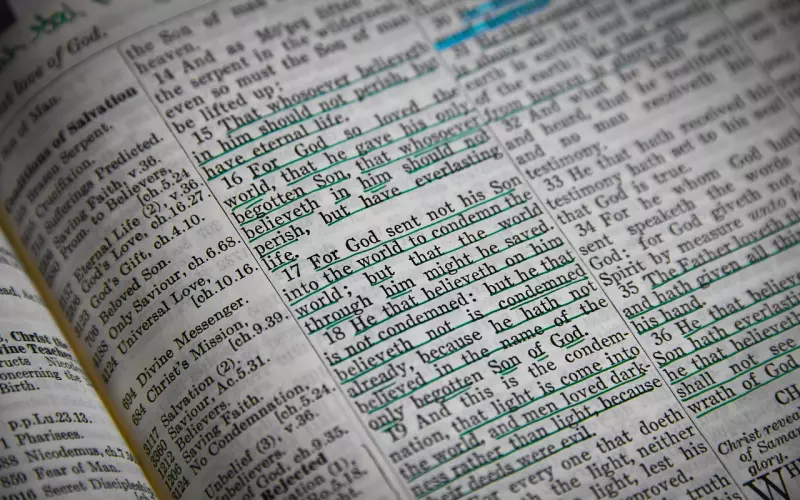 al love of God.
on of Man.
nditions of Salvation
Brazen Serpent.
Crucifixion.
Sufferings Predicted.
Saving Faith, v.36.
Prom. to Believers,
[ch.5.24
Eternal Life (2), v.36
God's Love, ch.16.27
God's Gift, ch.4.10.
706 Beloved Son.
Only Saviour, ch.6.68.
Universal Love,
[ch.10.16.
Divine Messenger.
684 Christ's Mission,
[ch.9.39.
Salvation (2),
Saviour, Ac.5.31.
1212 Believers.
1206 Saving Faith.
No Condemnation,
[ch.5.24.
Unbelief (3). v.36.
believers.
of God, ch.9.35.
Rejected
the Son of man
heaven.
14 And as Moses lifted
the serpent in the wilderness,
even so must the Son of man
be lifted up:
15 That whosoever believeth
in him should not perish, but
have eternal life.
16 For God so loved the
world, that he gave his only
begotten Son, that whosoever
believeth in him should not
perish, but have everlasting
life.
17 For God sent not his Son
into the world to condemn the
world; but that the world
through him might be saved
18 He that believeth on him
is not condemned: but he that
believeth not is condemned
already, because he hath not
believed in the name of the
only begotten Son of God.
19 And this is the condem-
nation, that light is come into
the world, and men loved dark-
ness rather than light, because
their deeds were evil.
every one that doeth
the light, neither
the light, lest his
above all: he that
earth is earthly, and
of the earth: he that
from heaven is above all.
32 And what he hath
and heard, that he testifieth
and no man receiveth his
testimony.
33 He that hath received his
testimony hath set to his seal
that God is true.
34 For he whom God hath
sent speaketh the words
God: for God giveth not
Spirit by measure unto
35 The Father loveth the
and hath given all thi
his hand.
36 He that believe
Son hath everlastin
he that believeth
shall not see
wrath of God
CH
Christ revea
of Samar
glory.
Christ the
vine Teacher
ructs Nicode
oncerning the
Birth.
p.p.Lu.23.13.
1 Pharisees.
Nicodemus, ch.7.
850 Fear of Man.
Secret Disciples